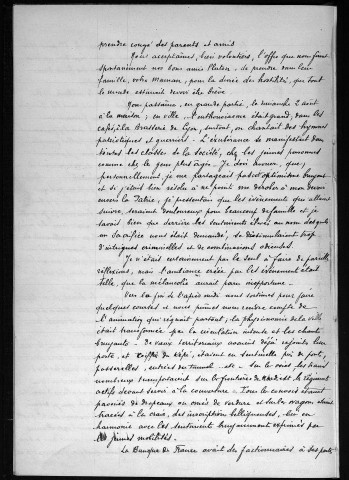 prendre congé des parents et amis.
Nous acceptâmes, bien volontiers, l'offre que nous firent
spontanément nos bons amis de prendre dans leur
famille, votre Maman, pour la durée des hostilités, que tout
le monde estimait devoir être brève.
Nous passâmes, en grande partie, le dimanche 2 août
à la maison; en ville, l'enthousiasme était grand, dans les
cafés, à la Brasserie de Lyon, surtout, on chantait des hymnes
patriotiques et guerriers. L'exubérance se manifestait dans
toutes les classes de la Société, chez les jeunes personnes
comme chez les gens plus âgés. Je dois avouer, que,
personnellement, je ne partageais pas cet optimisme bruyant
et si j'étais bien résolu à ne point me dérober à mon devoir
envers la Patrie, je pressentais que les événements qui allaient
suivre, seraient douloureux pour beaucoup de famille et je
savais bien que derrière les sentiments élevés au nom desquels
un sacrifice nous était demandé, se dissimulaient trop
d'intrigues criminelles et de combinaisons odieuses.
Je n'étais certainement pas le seul à faire de pareilles
réflexions, mais l'ambiance créée par les événements était
telle, que la mélancolie aurait paru inopportune.
Sur la fin de l'après midi nous sortîmes pour faire
quelques courses et nous pûmes nous rendre compte de
l'animation qui régnait partout, la physionomie de la ville
était transformée par la circulation intense et les chants
bruyants. De vieux territoriaux avaient déjà rejoint leur
poste, et coiffés du képi, étaient en sentinelle près des ponts,
passerelles, entrées du tunnel etc. Sur les voies les trains
nombreux transportaient sur les frontières du Nord-est, les régiments
actifs devant servir à la couverture. Tous les convois étaient
pavoisés de drapeaux ou ornés de verdure et sur les wagons, étaient
tracées à la craie, des inscriptions belliqueuses, bien en
harmonie avec les sentiments bruyamment exprimés par
les jeunes mobilisés.
La Banque de France avait des factionnaires à ses portes